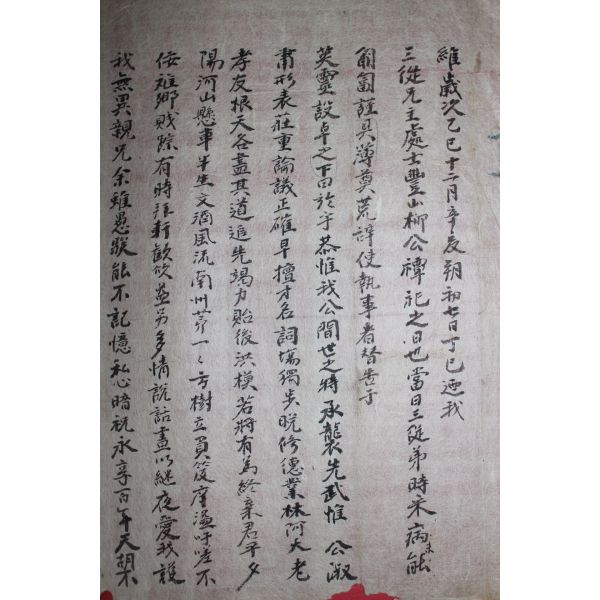 維歲次乙巳十二月辛亥朔初七日丁巳迺我
三從兄主處士豐山柳公禫祀之日也當日三從弟時宋病未能
匍匐謹具薄奠荒辭使執事者替告于
英靈設卓之下曰於乎恭惟我公間世之特承襲先武惟公淑
肅形表莊重論議正確早擅才名詞場獨步晩修德業林阿大老
孝友根天各盡其道追先竭力貽後洪模若將有為終棄君平夕
陽河山懸車半生文酒風流南州第一一方樹立員笈座溢吁嗟不
侫雖鄉賤踪有時拜軒歡欣益另多情說話晝以継夜愛我護
我無異親兄余雖愚騃能不記憶私心暗祝永享百年天胡不